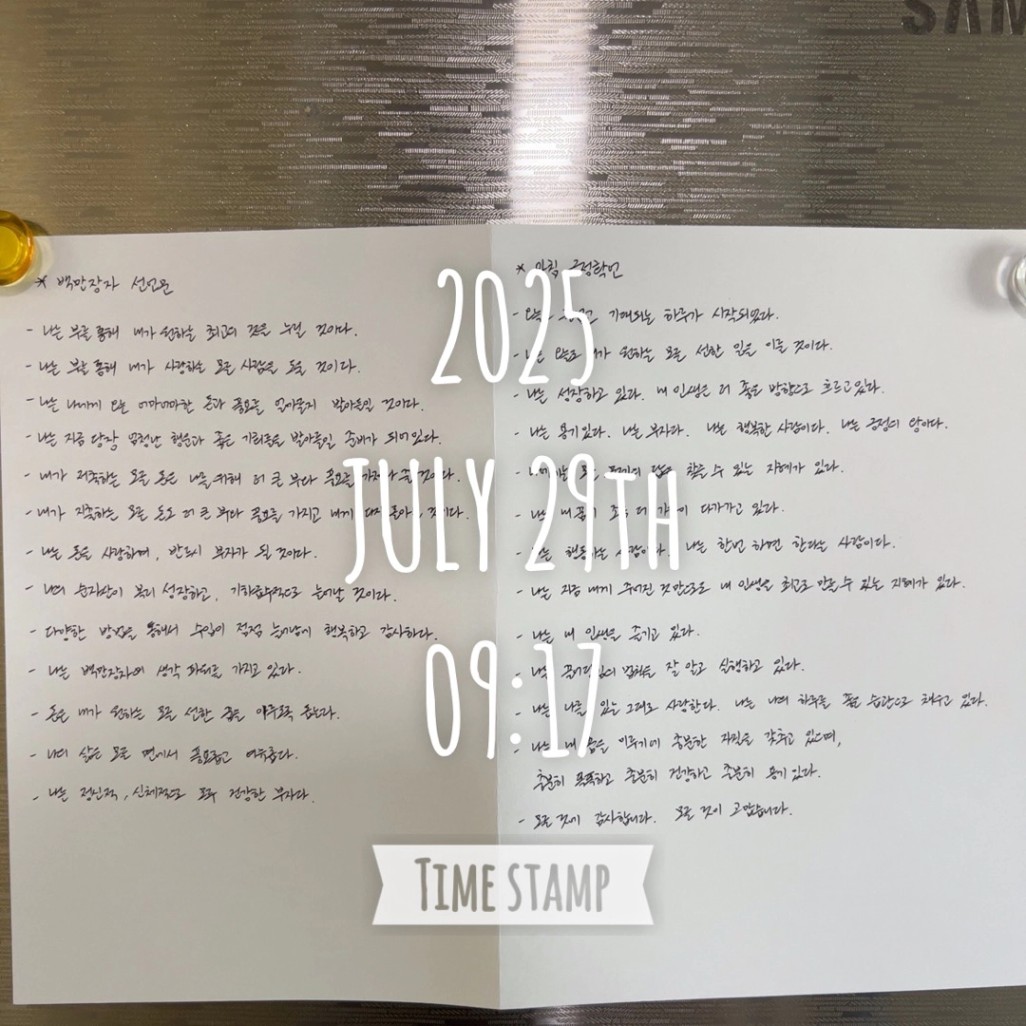 SAM
* 백만장자 선언문
- 나는 부를 통해 내가 원하는 최고의 것을 누릴 것이다.
- 나는 부를 통해 내가 사랑하는 모든 사람을 도울 것이다.
- 나는 나에게 오는 어마어마한 돈과 풍요를 받아들일 것이다.
- 나는 지금 당장 엄청난 행운과 좋은 기회들을 받아들일 준비가 되어있다.
- 내가 저축하는 모든 돈은 나를 위해 더 큰 부와 풍요를
- 내가 지출하는 모든 돈도 더 큰 부와 풍요를 가지고 내게 다시
- 나는 돈을 사랑하며, 반드시 부자가 될 것이다.
- 나의 순자산이 복리 성장하고, 기하급수적으로 늘어날 것이다.
- 다양한 방법을 통해서 수입이 점점 늘어남에 행복하고 감사하다.
- 나는 백만장자의 생각 파워를 가지고 있다.
- 돈은 내가 원하는 모든 선한 꿈을 이루도록 돕는다.
- 나의 삶은 모든 면에서 풍요롭고 여유롭다.
- 나는 정신적, 신체적으로 모두 건강한 부자다.
* 아침 긍정확언
- 기대되는 하루가 시작되었다.
- 나는 오늘도 내가 원하는 모든 선한 일을 이룰 것이다.
- 나는 성장하고 있다. 내 인생은 더 좋은 방향으로 흐르고있다.
- 나는 용기있다. 나는 부자다. 나는 행복한 사람이다. 나는 긍정의 왕이다.
- 찾을 수 있는 지혜가 있다.
- 나는 내 꿈에 다가가고 있다.
- 나는 행동하는 사람이다. 나는 한번 하면 한다는 사람이다.
- 나는 지금 내게 주어진 것만으로도 내 인생을 최고로 만들 수 있는 지혜가 있다.
- 나는 내 인생을 즐기고 있다.
- 나는 잘 알고 실행하고 있다.
- 나는 나를 있는 그대로 사랑한다. 나는 나의 하루를 좋은 습관으로 채우고 있다.
- 나는 내 꿈을 이루기에 충분한 자질을 갖추고 있으며,
충분히 똑똑하고 충분히 건강하고 충분히 용기 있다.
- 모든 것에 감사합니다. 모든 것이 고맙습니다.
2025
JULY 29TH
09:17
TIME STAMP